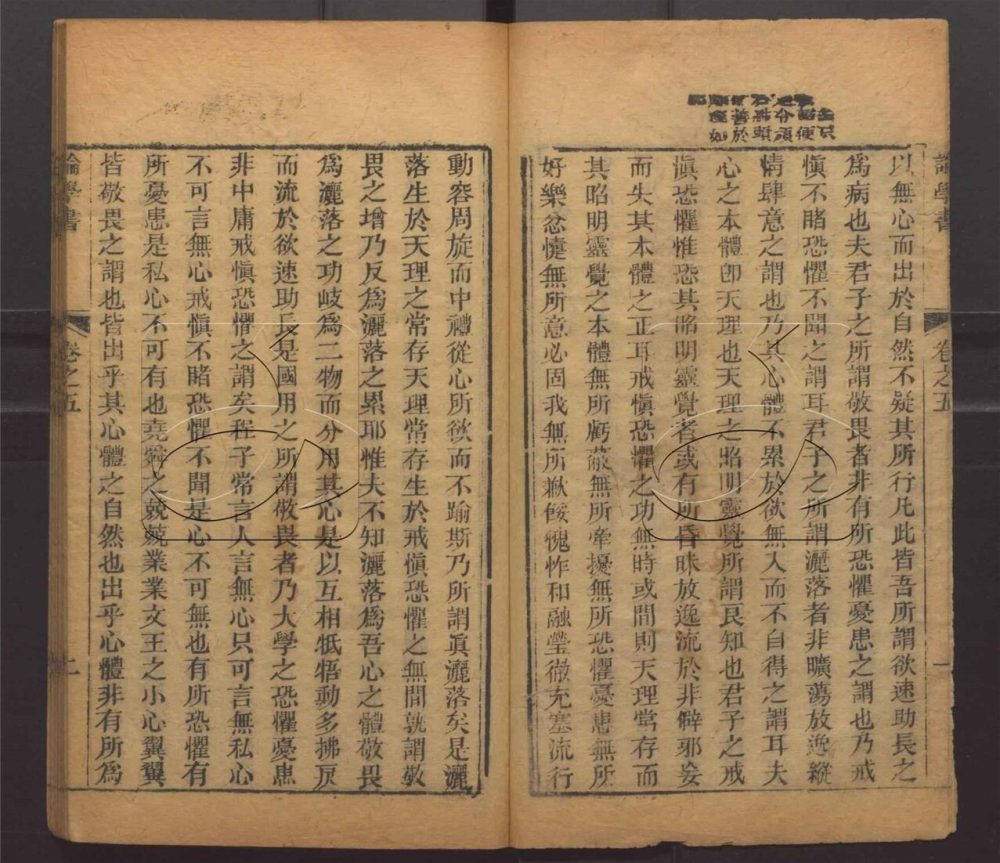 論學書
卷之五
一
以無心而出於自然不疑其所行凡此皆吾所謂欲速助長之
爲病也夫君子之所謂敬畏者非有所恐懼憂患之謂也乃戒
慎不睹恐懼不聞之謂耳君子之所謂灑落者非曠蕩放逸縱
情肆意之謂也乃其心體不累於欲無入而不自得之謂耳夫
心之本體卽天理也天理之昭明靈覺所謂良知也君子之戒
慎恐懼惟恐其昭明靈覺者或有所昏昧放逸流於非僻邪妄
而失其本體之正耳戒慎恐懼之功無時或間則天理常存而
其昭明靈覺之本體無所虧蔽無所牽擾無所恐懼憂患無所
好樂忿懥無所意必固我無所歉餒愧怍和融瑩徹充塞流行
動容周旋而中禮從心所欲而不踰斯乃所謂眞灑落矣是灑
落生於天理之常存天理常存生於戒慎恐懼之無間孰謂敬
畏之增乃反爲灑落之累耶惟夫不知灑落爲吾心之體敬畏
爲灑落之功岐爲二物而分用其心是以互相牴牾動多拂戾
而流於欲速助長是國用之所謂敬畏者乃大學之恐懼憂患
非中庸戒慎恐懼之謂矣程子常言人言無心只可言無私心
不可言無心戒慎不睹恐懼不聞是心不可無也有所恐懼有
所憂患是私心不可有也堯舜之兢兢業業文王之小心翼翼
皆敬畏之謂也皆出乎其心體之自然也出乎心體非有所爲
論學書
卷之五
二